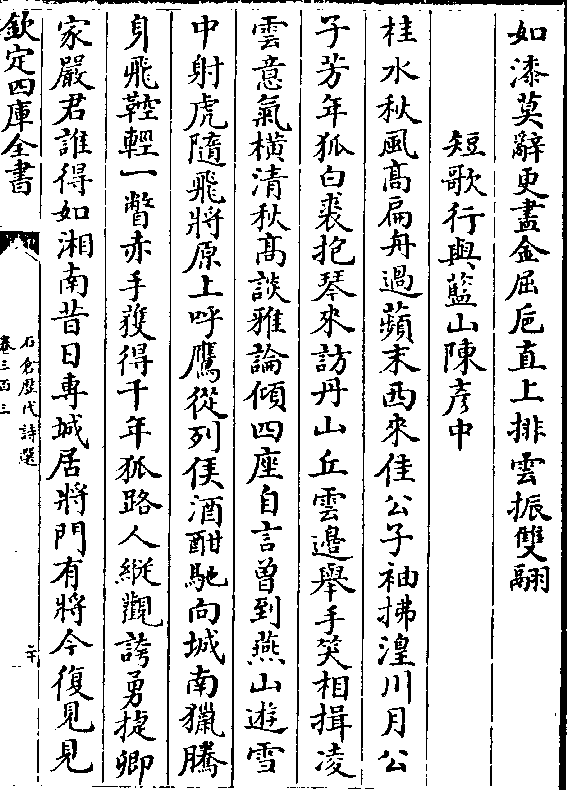 如漆莫辭更盡金屈卮直上排雲振雙翮
短歌行與藍山陳彦中
桂水秋風髙扁舟過蘋末西來佳公子袖拂湟川月公
子芳年狐白裘抱琴來訪丹山丘雲邉舉手笑相揖凌
雲意氣横清秋髙談雅論傾四座自言曽到燕山逰雪
中射虎隨飛將原上呼鷹從列侯酒酣馳向城南獵騰
身飛鞚輕一瞥赤手獲得千年狐路人縱觀誇勇捷卿
家嚴君誰得如湘南昔日專城居將門有將今復見見
欽定四庫全書
石倉歴代詩選
卷三百三
二十